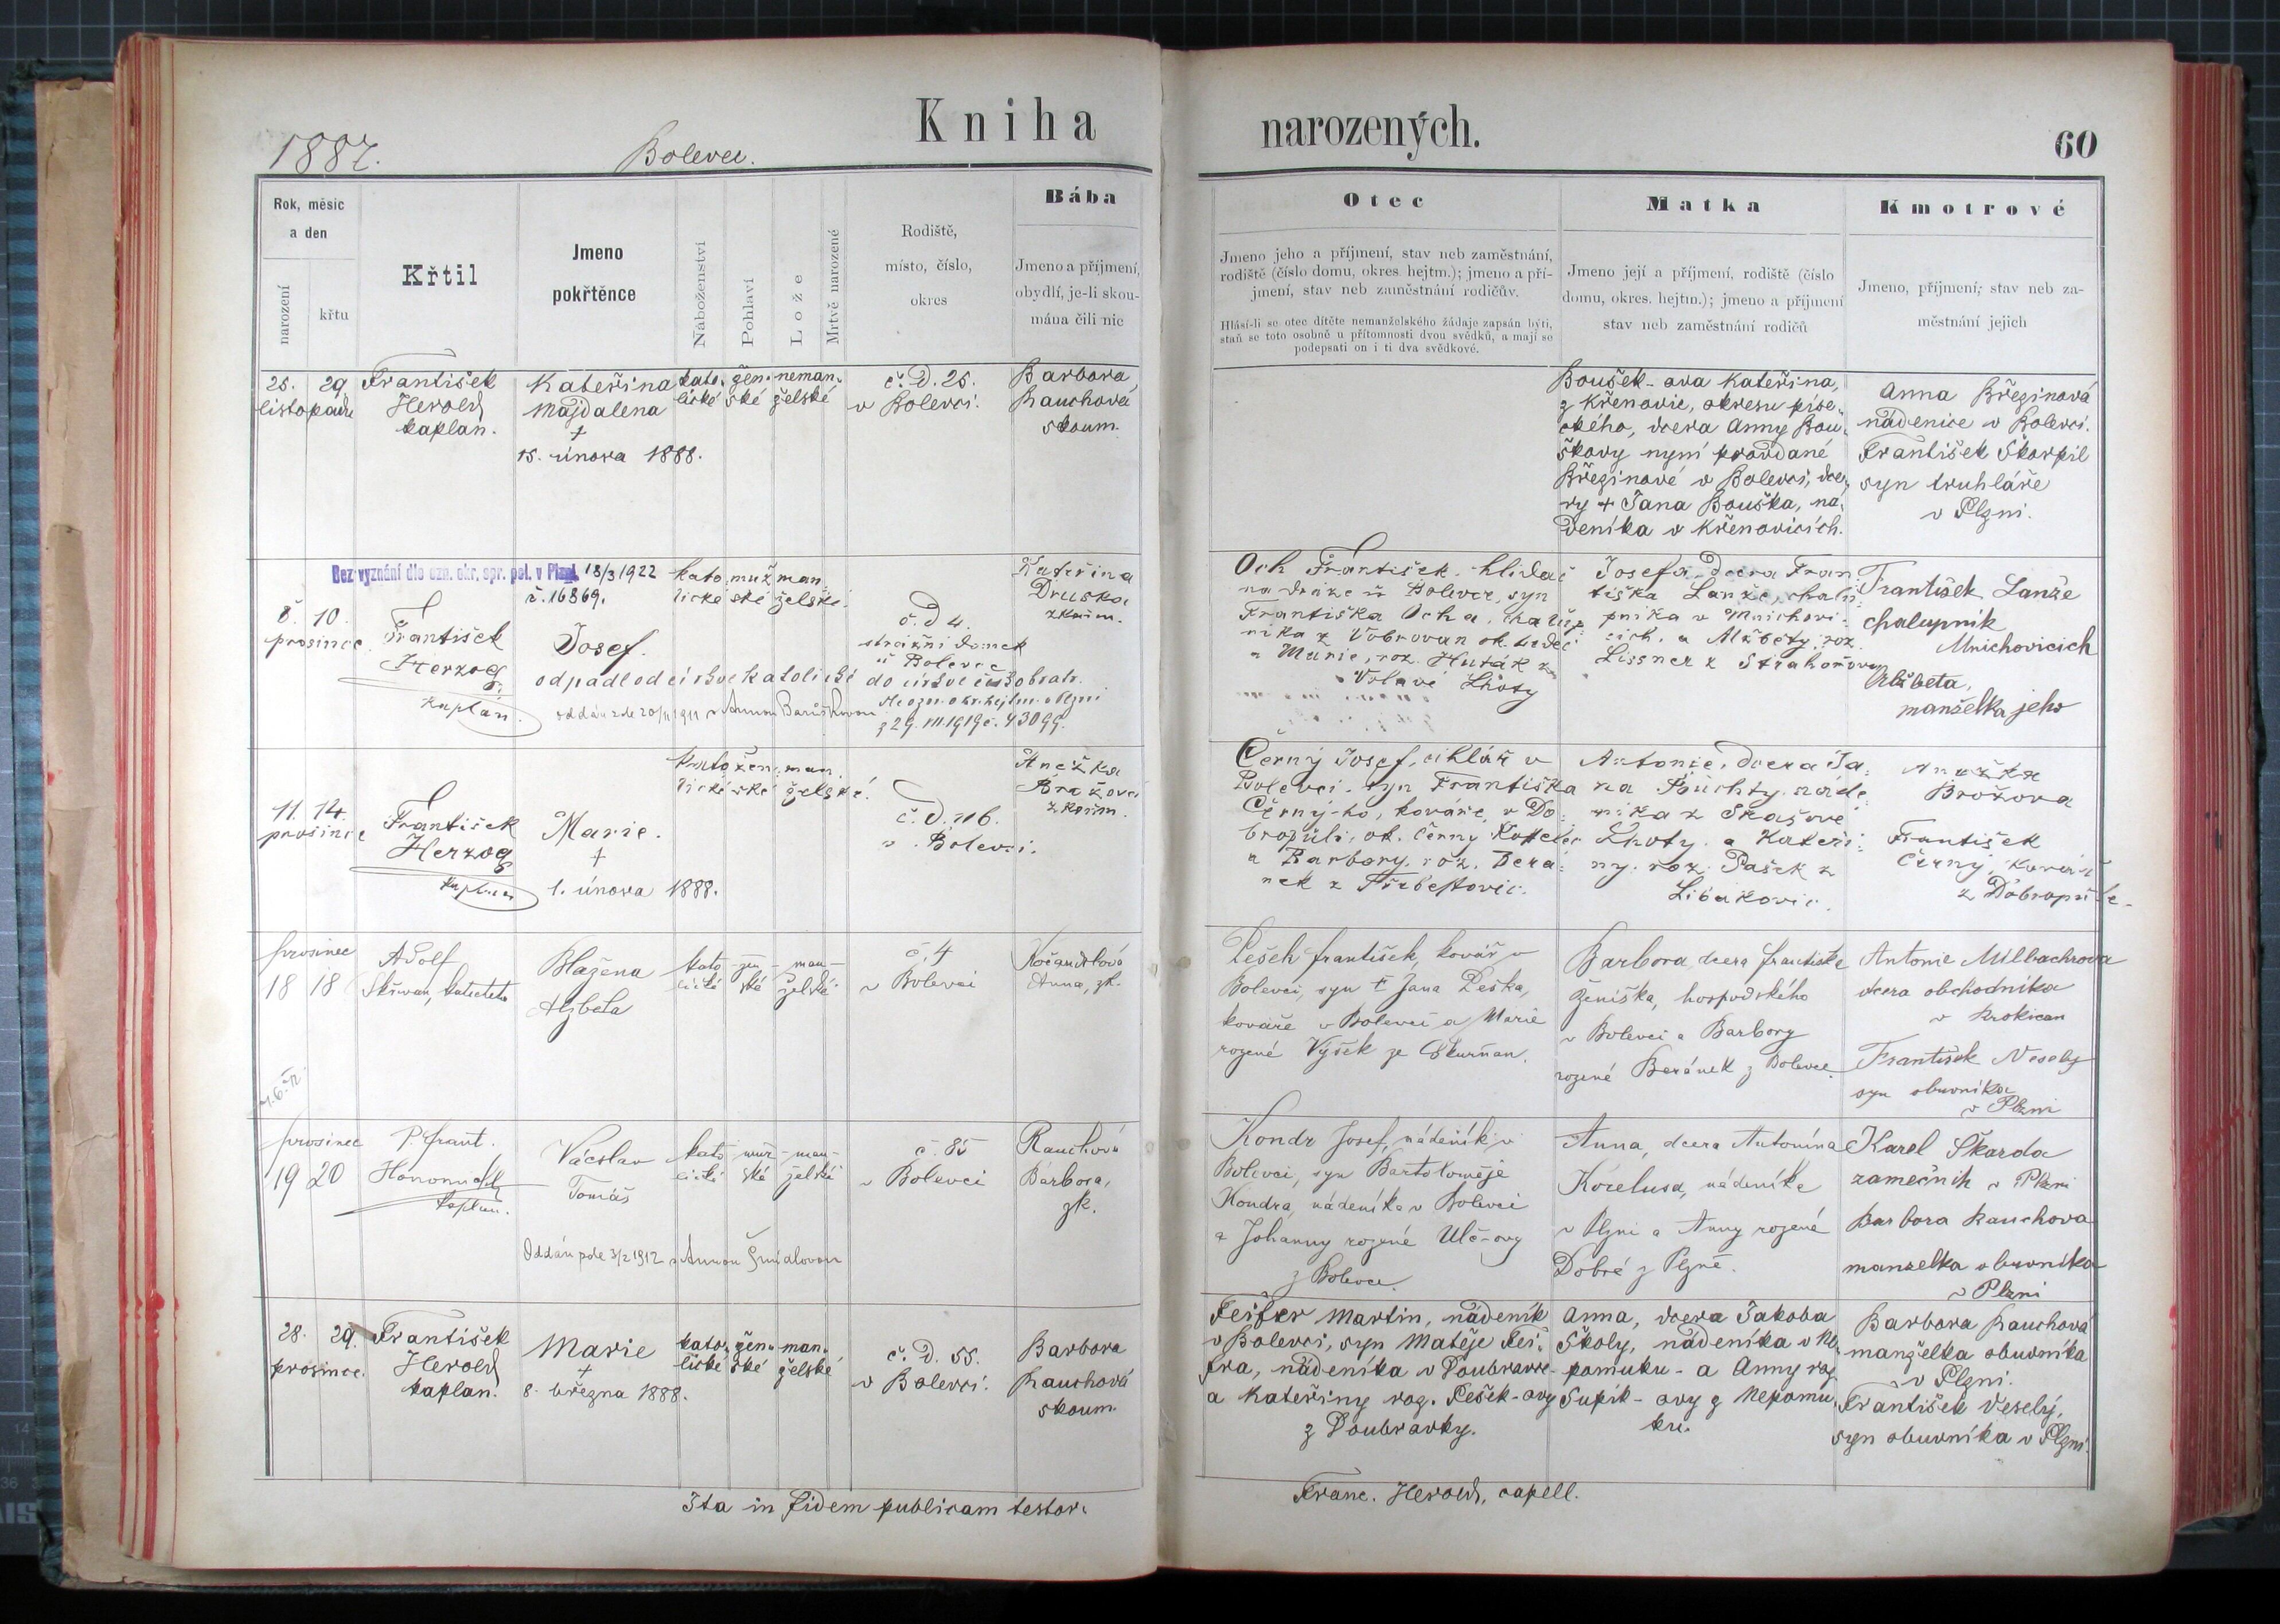 Kniha narozených.
1887.
Bolevec.
60
Rok, měsíc
a den
narození
křtu
Křtil
Jmeno
pokřtěnce
Náboženství
Pohlaví
Lože
Mrtvě narozené
Rodiště,
místo, číslo,
okres
Bába
Jmeno a příjmení,
obydlí, je-li skou-
mána čili nic
Otec
Jmeno jeho a příjmení, stav neb zaměstnání,
rodiště (číslo domu, okres. hejtm.); jmeno a pří-
jmení, stav neb zaměstnání rodičův.
Hlásí-li se otec dítěte nemanželského žádaje zapsán býti,
staň se toto osobně u přítomnosti dvou svědků, a mají se
podepsati on i ti dva svědkové.
Matka
Jmeno její a příjmení, rodiště (číslo
domu, okres. hejtm.); jmeno a příjmení
stav neb zaměstnání rodičů
Kmotrové
Jmeno, příjmení; stav neb za-
městnání jejich
25. 29
listopadu
František
Herold
kaplan.
Kateřina
Majdalena
†
15. února 1888.
kato-
lické
žen-
ské
neman-
želské
č. D. 25.
v Bolevci.
Barbora
Rauchová
skoum.
Boušek-ova Kateřina,
z Křenovic, okresu píse-
ckého, dcera Anny Bou-
škovy nyní provdané
Březinové v Bolevci, dce-
ry † Jana Bouška, ná-
deníka v Křenovicích.
Anna Březinová
nádenice v Bolevci.
František Škorpil
syn truhláře
v Plzni.
Bez vyznání dle ozn. okr. spr. pol. v Plzni 18/3 1922
č. 16869.
8. 10.
prosince
František
Herzog
kaplan.
Josef.
kato
lické
muž
ské
man
želské.
č. d 4.
strážní domek
u Bolevce
Kateřina
zkoum.
odpadl od církve katolické do církve českobratr.
oddán zde 20/11 1911 s Annou
Dle ozn. okr. hejtm. v Plzni
z 29. III. 1919 č. 43099.
Och František, hlídač
na dráze u Bolevce, syn
Františka Ocha, chalup-
níka z Vobrovan
a Marie, roz. Huták z
Lhoty
Josefa, dcera Fran-
tiška Lanže, chalu-
pníka v Mnichovi-
cích, a Alžběty, roz.
Lissner z
František Lanže
chalupník
Mnichovicích
Alžběta,
manželka jeho
11. 14.
prosince
František
Herzog
kaplan
Marie.
†
1. února 1888.
kato
lické
žen
ské
man
želské.
č. D. 116.
v Bolevci.
Anežka
Brožová
zkoum.
Černý Josef, cihlář v
Bolevci, syn Františka
Černý-ho, kováře, v Do-
bropuli, ok. Černý Kostelec
a Barbory, roz. Bera-
nek z
Antonie, dcera Ja-
na Puchty, náde-
níka z Skašové
Lhoty, a Kateři-
ny, roz. Pašek z
Libákovic.
Anežka
Brožova
František
Černý, kovář
z Dobropule
prosinec
18 18
Adolf
Skřivan, katecheta
Blažena
Alžběta
kato-
lické
žen-
ské
man-
želské
č. 4
v Bolevci
Kočandrlová
Anna, zk.
Pešek František, kovář v
Bolevci, syn † Jana Peška,
kováře v Bolevci a Marie
rozené Vyšek ze Skurňan.
Barbora, dcera Františka
Ženíška, hospodského
v Bolevci a Barbory
rozené Beránek z Bolevce.
Antonie Milbachrova
dcera obchodníka
v Rokican
František Vesely
syn obuvníka
v Plzni
prosinec
19 20
P. Frant.
kaplan.
Vácslav
Tomáš
kato
lické
muž-
ské
man-
želské
č. 85
v Bolevci
Rauchová
Barbora,
zk.
Oddán zde 3/2 1912 s Annou
Kondr Josef, nádeník v
Bolevci, syn Bartoloměje
Kondra, nádeníka v Bolevci
a Johanny rozené Ulč-ovy
z Bolevce
Anna, dcera Antonína
Korelusa, nádeníka
v Plzni a Anny rozené
Dobré z Plzně.
Karel Škarda
zamečnik v Plzni
Barbora Rauchova
manzelka obuvníka
v Plzni
28. 29.
prosince.
František
Herold
kaplan.
Marie
†
8. března 1888.
kato-
lické
žen-
ské
man-
želské
č. D. 55.
v Bolevci.
Barbora
Rauchová
skoum.
Martin, nádeník
v Bolevci, syn Matěje
nádeníka v Doubravce
a Kateřiny roz. Pešek-ovy
z Doubravky.
Anna, dcera Jakoba
Školy, nádeníka v Ne-
pomuku - a Anny roz.
Supík-ovy z Nepomu-
ku.
Barbora Rauchová
manželka obuvníka
v Plzni.
František Veselý,
syn obuvníka v Plzni.
Ita in fidem publicam testor.
Franc. Herold, capell.